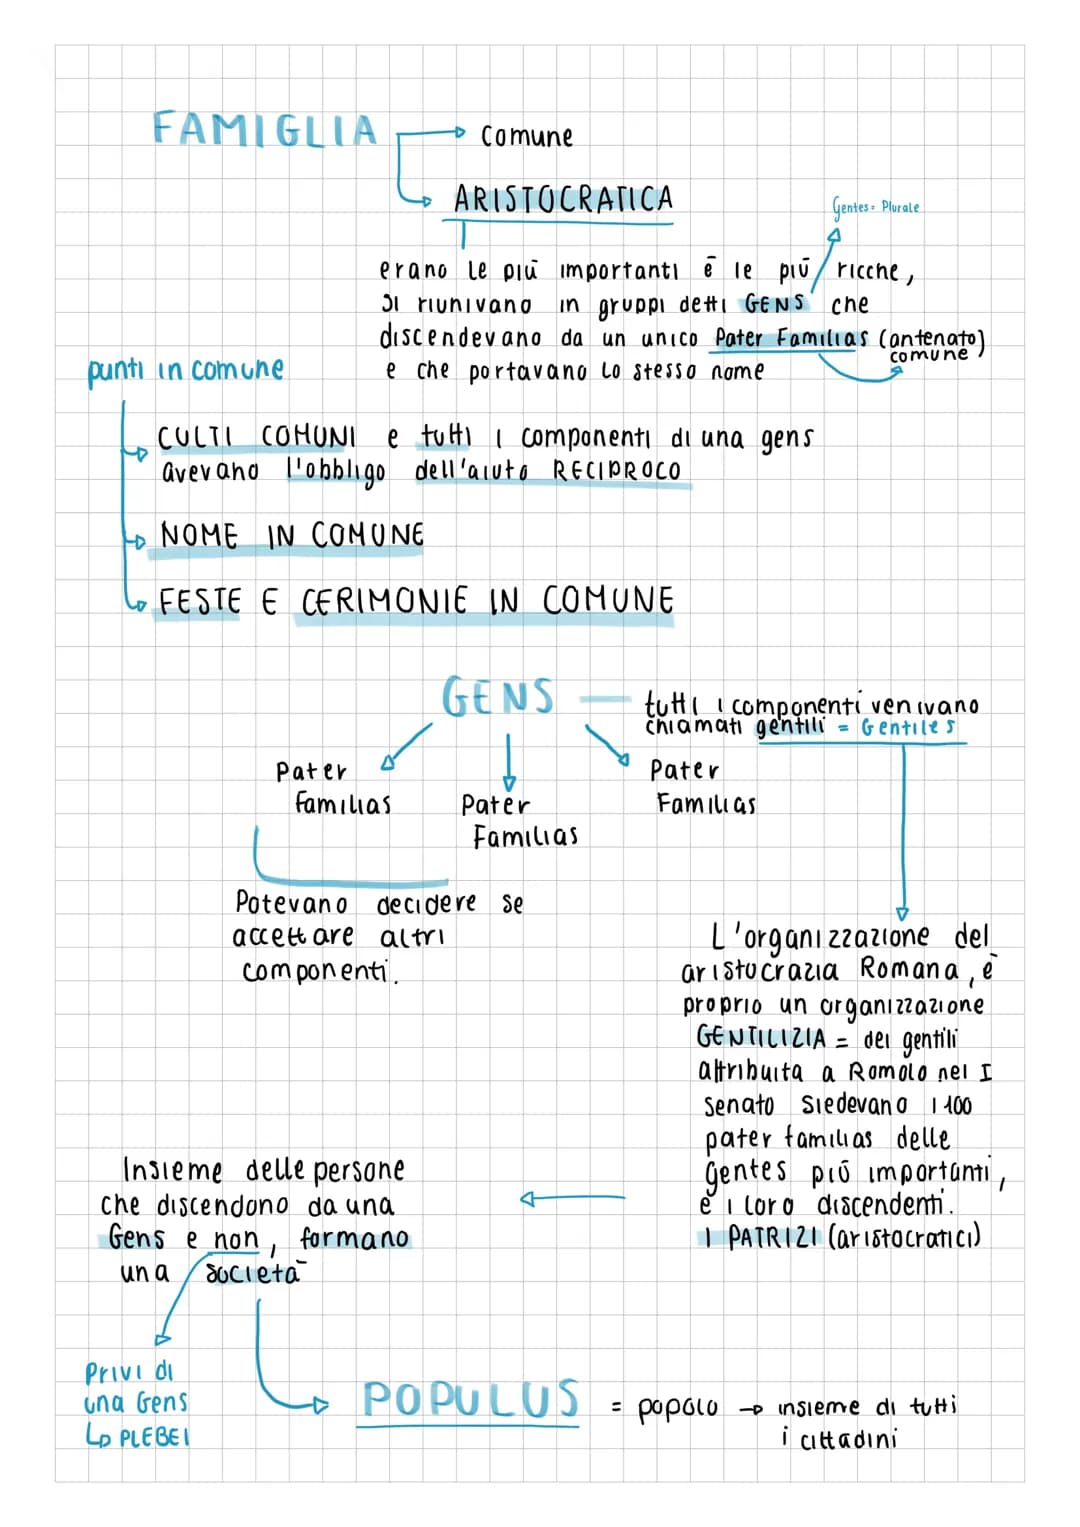 FAMIGLIA
comune
ARISTOCRATICA
Gentes = Plurale
erano le più importanti e le più ricche,
si riunivano in gruppi detti GENS che
discendevano da un unico Pater Familias (antenato
comune)
e che portavano lo stesso nome
punti in comune
CULTI COMUNI e tutti i componenti di una gens
avevano l'obbligo dell'aiuto RECIPROCO
NOME IN COMUNE
FESTE E CERIMONIE IN COMUNE
GENS
tutti i componenti venivano
chiamati gentili = Gentiles
Pater
familias
Pater
Familias
Pater
Familias
Potevano decidere se
accettare altri
componenti.
L'organizzazione del
aristocrazia Romana, è
proprio un organizzazione
GENTILIZIA = dei gentili
attribuita a Romolo nel I
Senato siedevano i 100
pater familias delle
gentes più importanti,
e i loro discendenti.
I PATRIZI (aristocratici)
Insieme delle persone
che discendono da una
Gens e non, formano
una società
Privi di
una Gens
PLEBEI
POPULUS = popolo → insieme di tutti
i cittadini